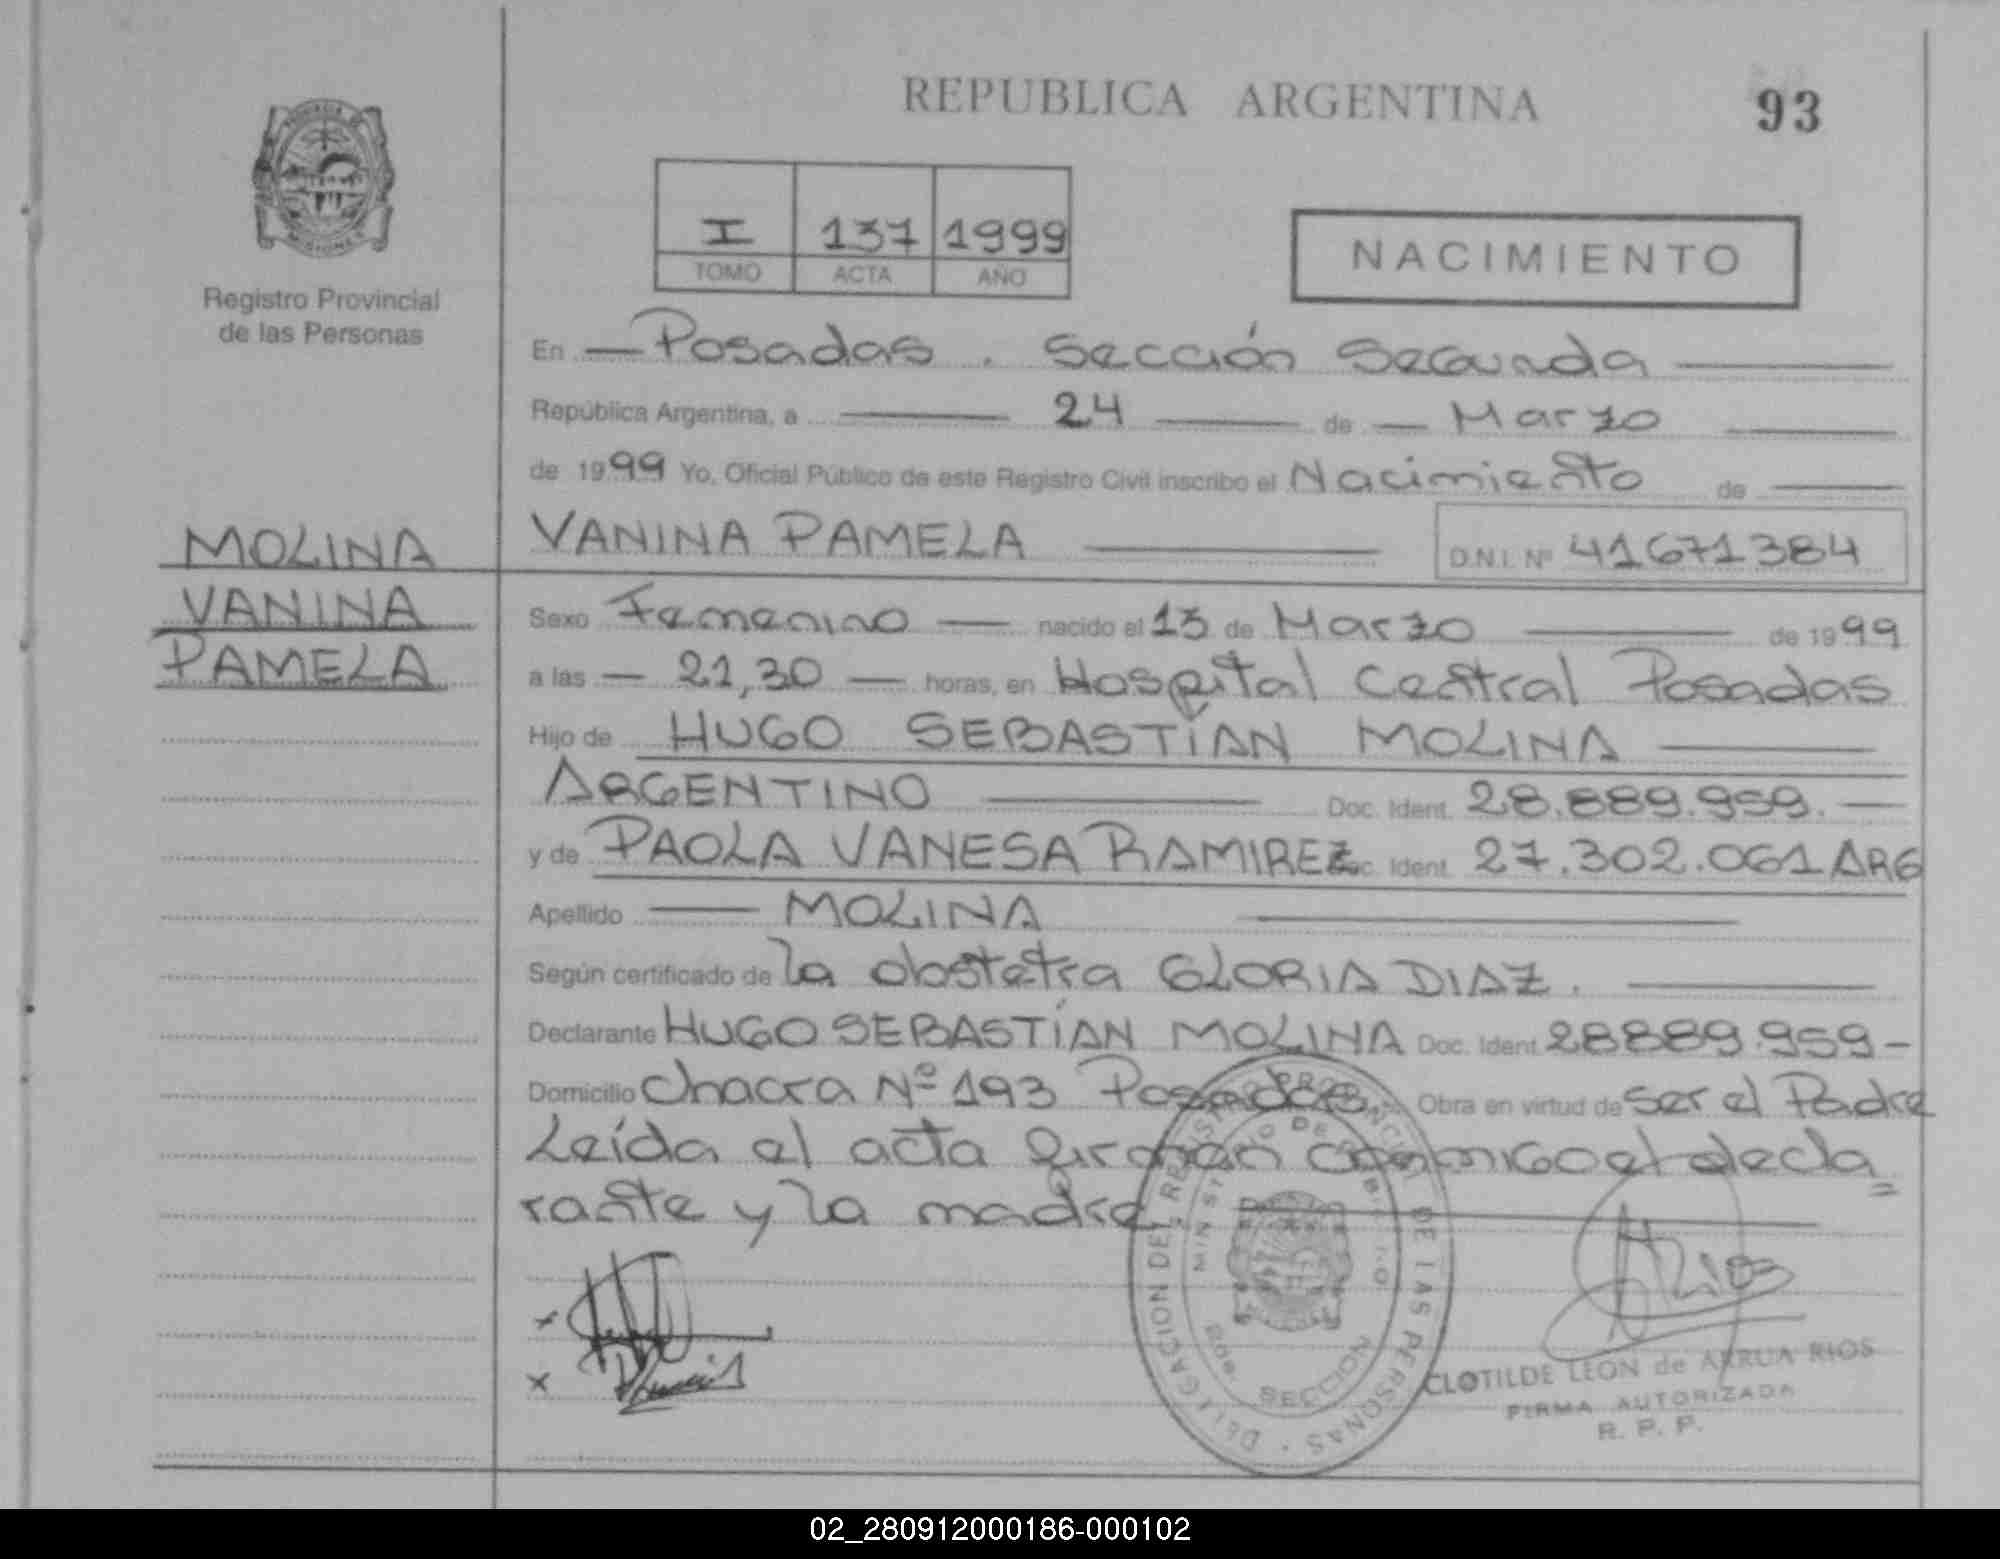 REPUBLICA ARGENTINA
93
PROVINCIA DE MISIONES
Registro Provincial
de las Personas
I 137 1999
TOMO ACTA AÑO
NACIMIENTO
En Posadas . Sección Segunda
República Argentina, a 24 de Marzo
de 1999 Yo, Oficial Público de este Registro Civil inscribo el Nacimiento de
MOLINA
VANINA
PAMELA
VANINA PAMELA D.N.I. Nº 41671384
Sexo Femenino nacido el 13 de Marzo de 1999
a las 21,30 horas, en Hospital Central Posadas
Hijo de HUGO SEBASTÍAN MOLINA
ARGENTINO Doc. Ident. 28.889.959.
y de PAOLA VANESA RAMIREZ Doc. Ident. 27.302.061 ARG
Apellido MOLINA
Según certificado de la obstetra GLORIA DIAZ.
Declarante HUGO SEBASTÍAN MOLINA Doc. Ident. 28889.959-
Domicilio Chacra Nº 193 Posadas Obra en virtud de ser el Padre
Leída el acta firman conmigo el decla=
rante y la madre.
DELEGACION DEL REGISTRO PROVINCIAL DE LAS PERSONAS
MINISTERIO DE GOBIERNO
SECCION
A Rios
x
x
CLOTILDE LEON de ARRUA RIOS
FIRMA AUTORIZADA
R. P. P.
02_280912000186-000102